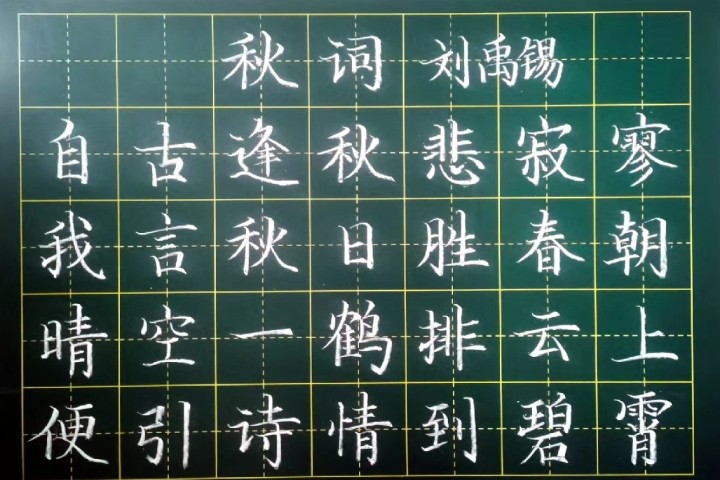 秋词 刘禹锡
自古逢秋悲寂寥
我言秋日胜春朝
晴空一鹤排云上
便引诗情到碧霄